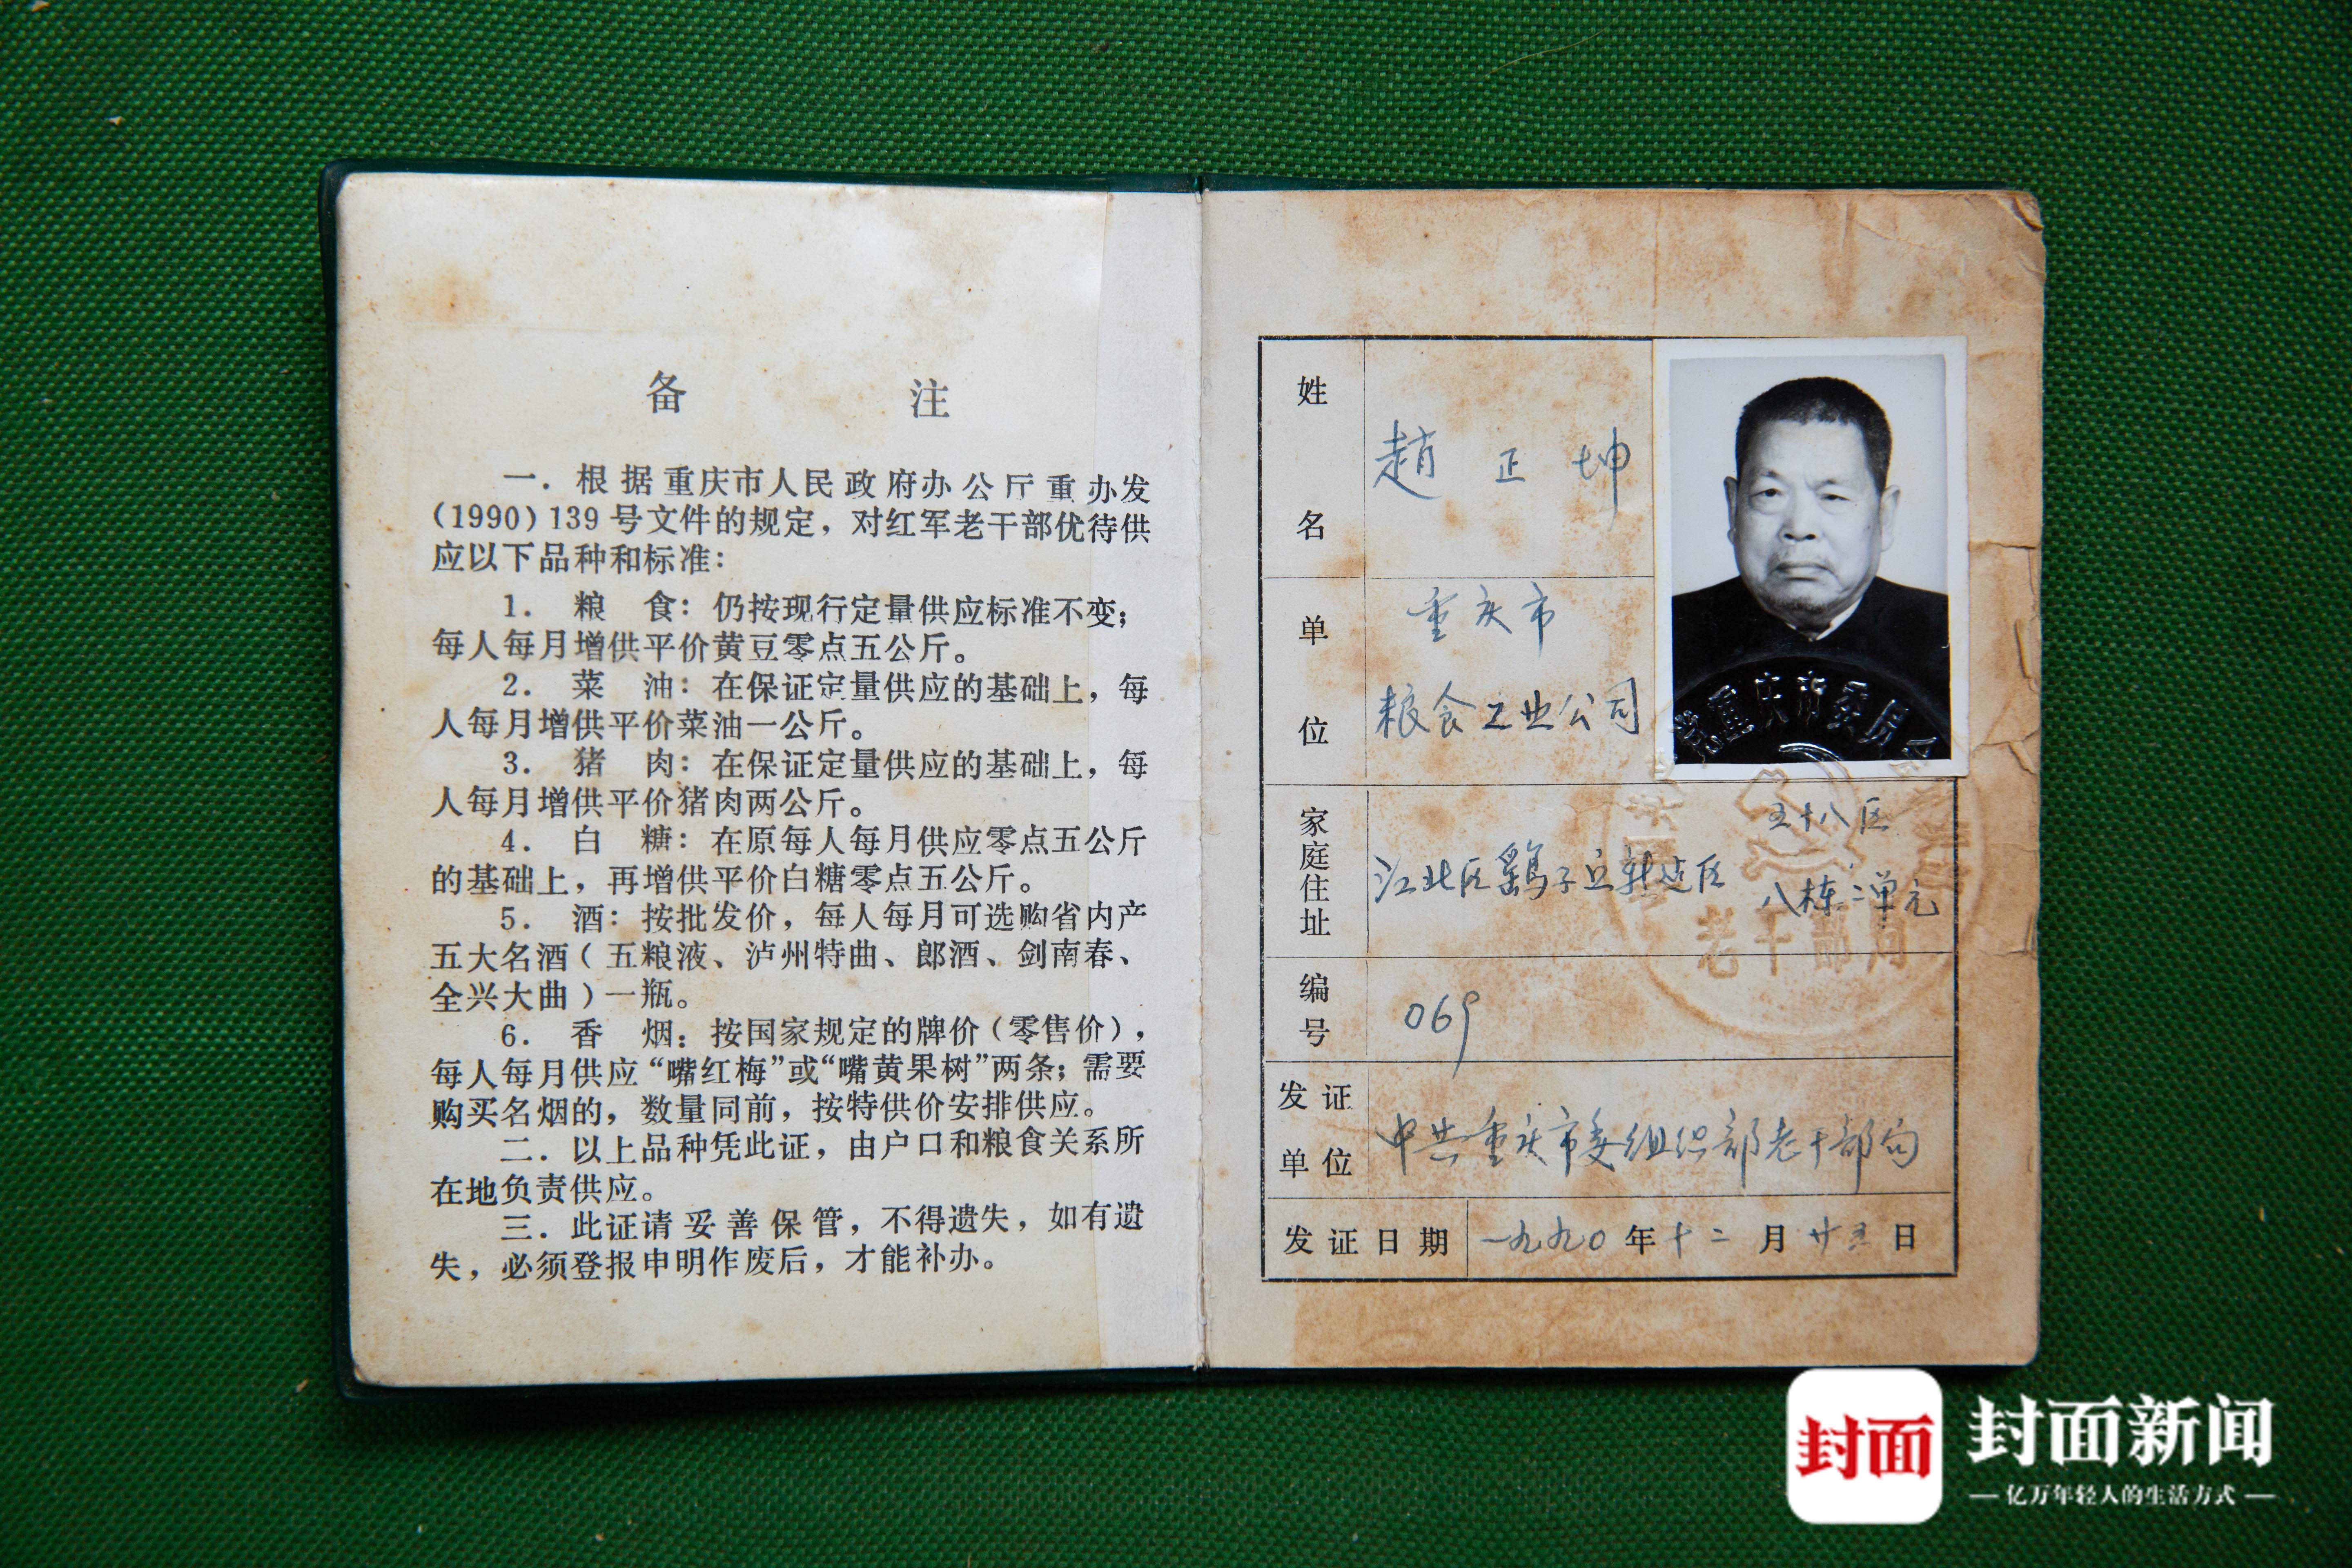 备 注
一．根据重庆市人民政府办公厅重办发
(1990)139号文件的规定，对红军老干部优待供
应以下品种和标准：
1． 粮 食：仍按现行定量供应标准不变；
每人每月增供平价黄豆零点五公斤。
2． 菜 油：在保证定量供应的基础上，每
人每月增供平价菜油一公斤。
3． 猪 肉：在保证定量供应的基础上，每
人每月增供平价猪肉两公斤。
4． 白 糖：在原每人每月供应零点五公斤
的基础上，再增供平价白糖零点五公斤。
5． 酒：按批发价，每人每月可选购省内产
五大名酒（五粮液、泸州特曲、郎酒、剑南春、
全兴大曲）一瓶。
6． 香 烟：按国家规定的牌价（零售价），
每人每月供应“嘴红梅”或“嘴黄果树”两条；需要
购买名烟的，数量同前，按特供价安排供应。
二．以上品种凭此证，由户口和粮食关系所
在地负责供应。
三．此证请妥善保管，不得遗失，如有遗
失，必须登报申明作废后，才能补办。
姓名 趙正坤
单位 重庆市
粮食工业公司
党重庆市委员会
老干部局
家庭住址 江北区鷂子丘新建区 五十八区
八栋二单元
编号 069
发证单位 中共重庆市委组织部老干部局
发证日期 一九九〇年十二月廿五日
封面
封面新闻
亿万年轻人的生活方式